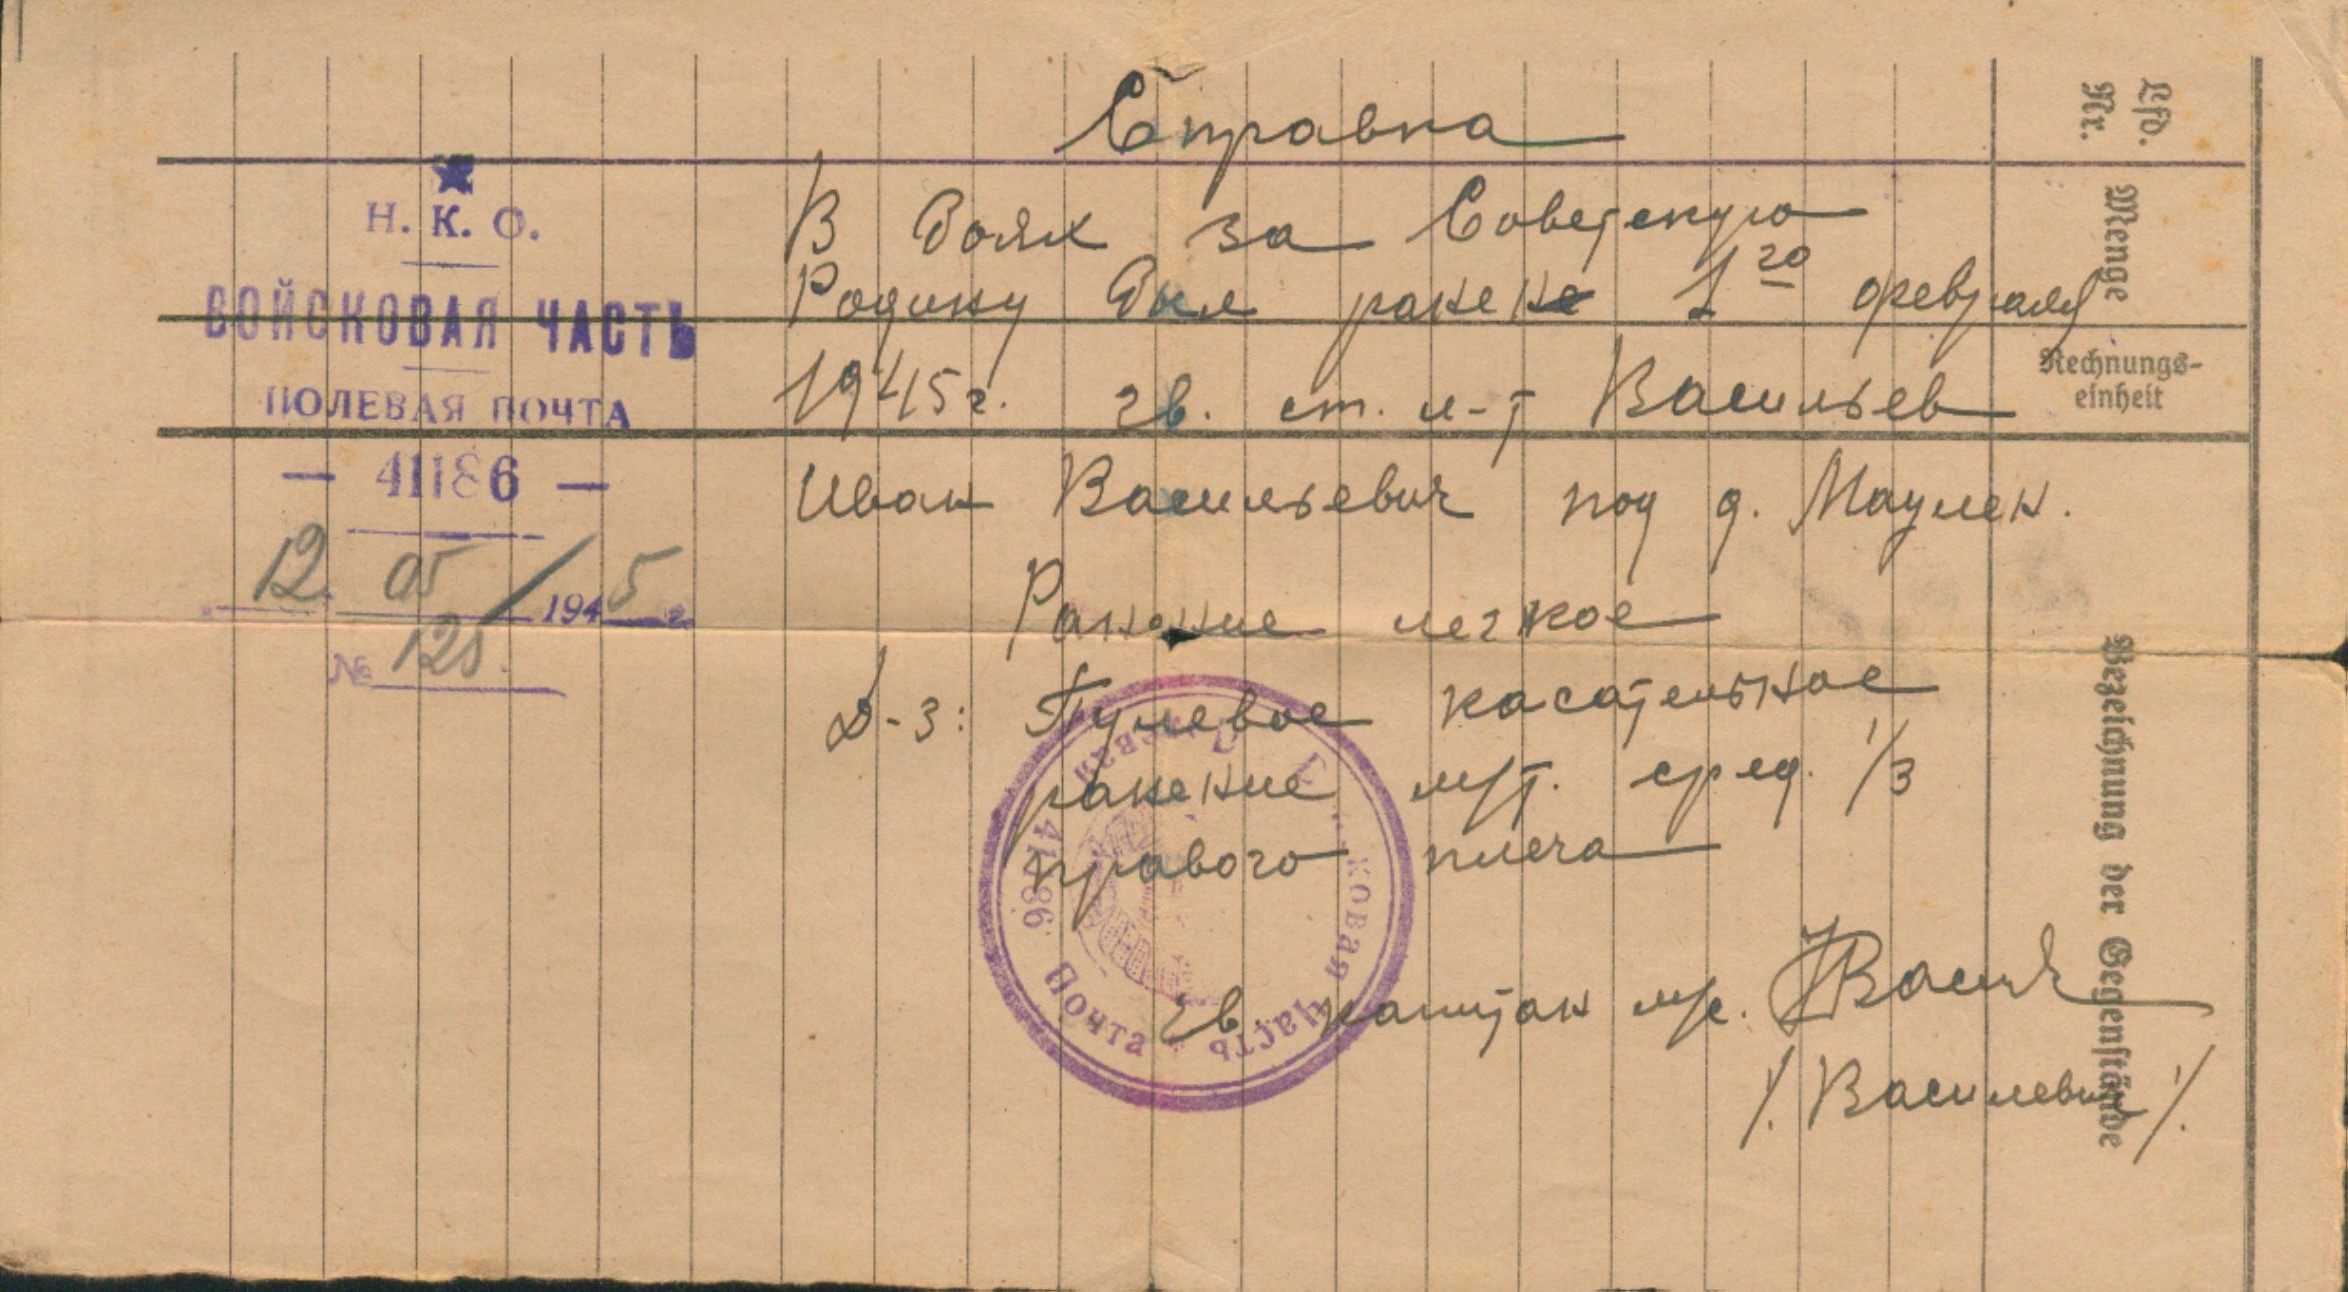 Справка
В боях за Советскую
Родину был ранен 1го февраля
1945г. гв. ст. л-т Васильев
Иван Васильевич под д. Маулен.
Ранение легкое
Д-з: Пулевое касательное
ранение м/т. сред. 1/3
правого плеча
Гв. капитан м/с.
/. Василевич /.
Н. К. О.
ВОЙСКОВАЯ ЧАСТЬ
ПОЛЕВАЯ ПОЧТА
— 41186 —
12. 05 1945 г.
№ 125.
Почта
часть
Lfd.
Nr.
Menge
Rechnungs-
einheit
Bezeichnung der Gegenstände